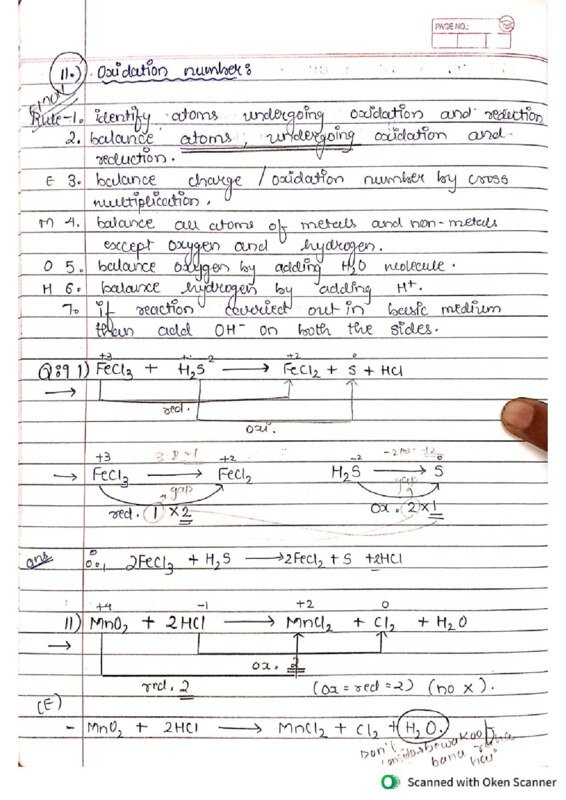 PAGE NO.:
11.) Oxidation number:
Rule-1. identify atoms undergoing oxidation and reduction
2. balance atoms, undergoing oxidation and
reduction.
E 3. balance charge / oxidation number by cross
multiplication.
M 4. balance all atoms of metals and non-metals
except oxygen and hydrogen.
O 5. balance oxygen by adding H2O molecule.
H 6. balance hydrogen by adding H+.
7. if reaction carried out in basic medium
then add OH- on both the sides.
+3 +2 0
Q:9 1) FeCl3 + H2S → FeCl2 + S + HCl
→
red.
oxi.
+3 +2 -2 0
→ FeCl3 → FeCl2 H2S → S
gap gap
red. 1 × 2 ox. 2 × 1
ans ∴ 2FeCl3 + H2S → 2FeCl2 + S + 2HCl
+4 -1 +2 0
11) MnO2 + 2HCl → MnCl2 + Cl2 + H2O
→
ox. 2
red. 2 (ox = red = 2) (no x).
(E)
- MnO2 + 2HCl → MnCl2 + Cl2 + H2O.
Don't
bewakoof
bana raha
hai
Scanned with Oken Scanner